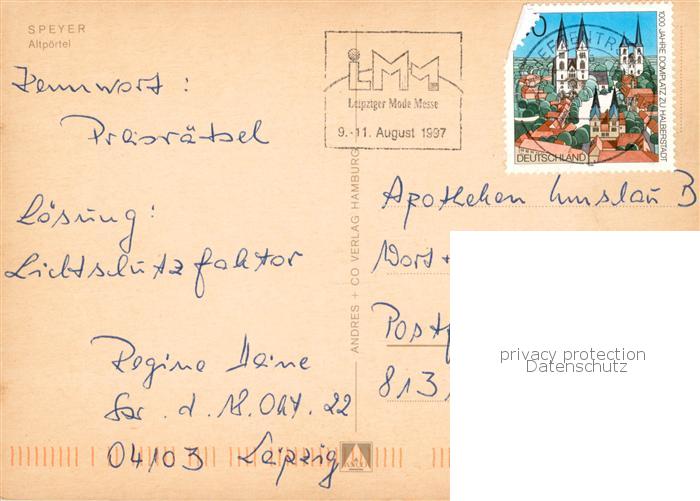 SPEYER
Altpörtel
Kennwort:
Preisrätsel
Lösung:
Lichtschutzfaktor
Regine Heine
Str. d. 18. Okt. 22
04103 Leipzig
ANDRES + CO VERLAG HAMBURG
Leipziger Mode Messe
9.-11. August 1997
DEUTSCHLAND
1000 JAHRE DOMPLATZ ZU HALBERSTADT
Apotheken Umschau B
Wort +
Postf
813
privacy protection
Datenschutz